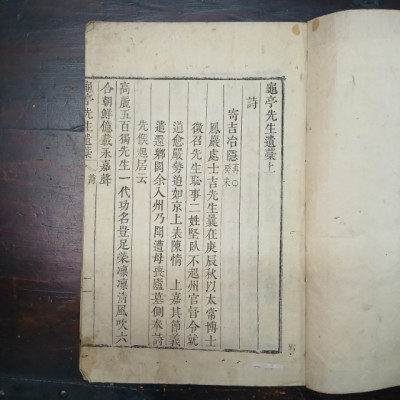 龜亭先生遺藁上
詩
寄吉冶隱
癸未
鳳巖處士吉先生曩在庚辰秋以太常博士
徵召先生恥事二姓堅臥不起州官督令就
道愈嚴勢迫如京上表陳情 上嘉其節義
遣還鄕閭余入州乃聞遭母喪廬墓側奉詩
先候起居云
高麗五百獨先生一代功名豈足榮凜凜淸風吹六
合朝鮮億載永嘉聲
龜亭先生遺藁
一